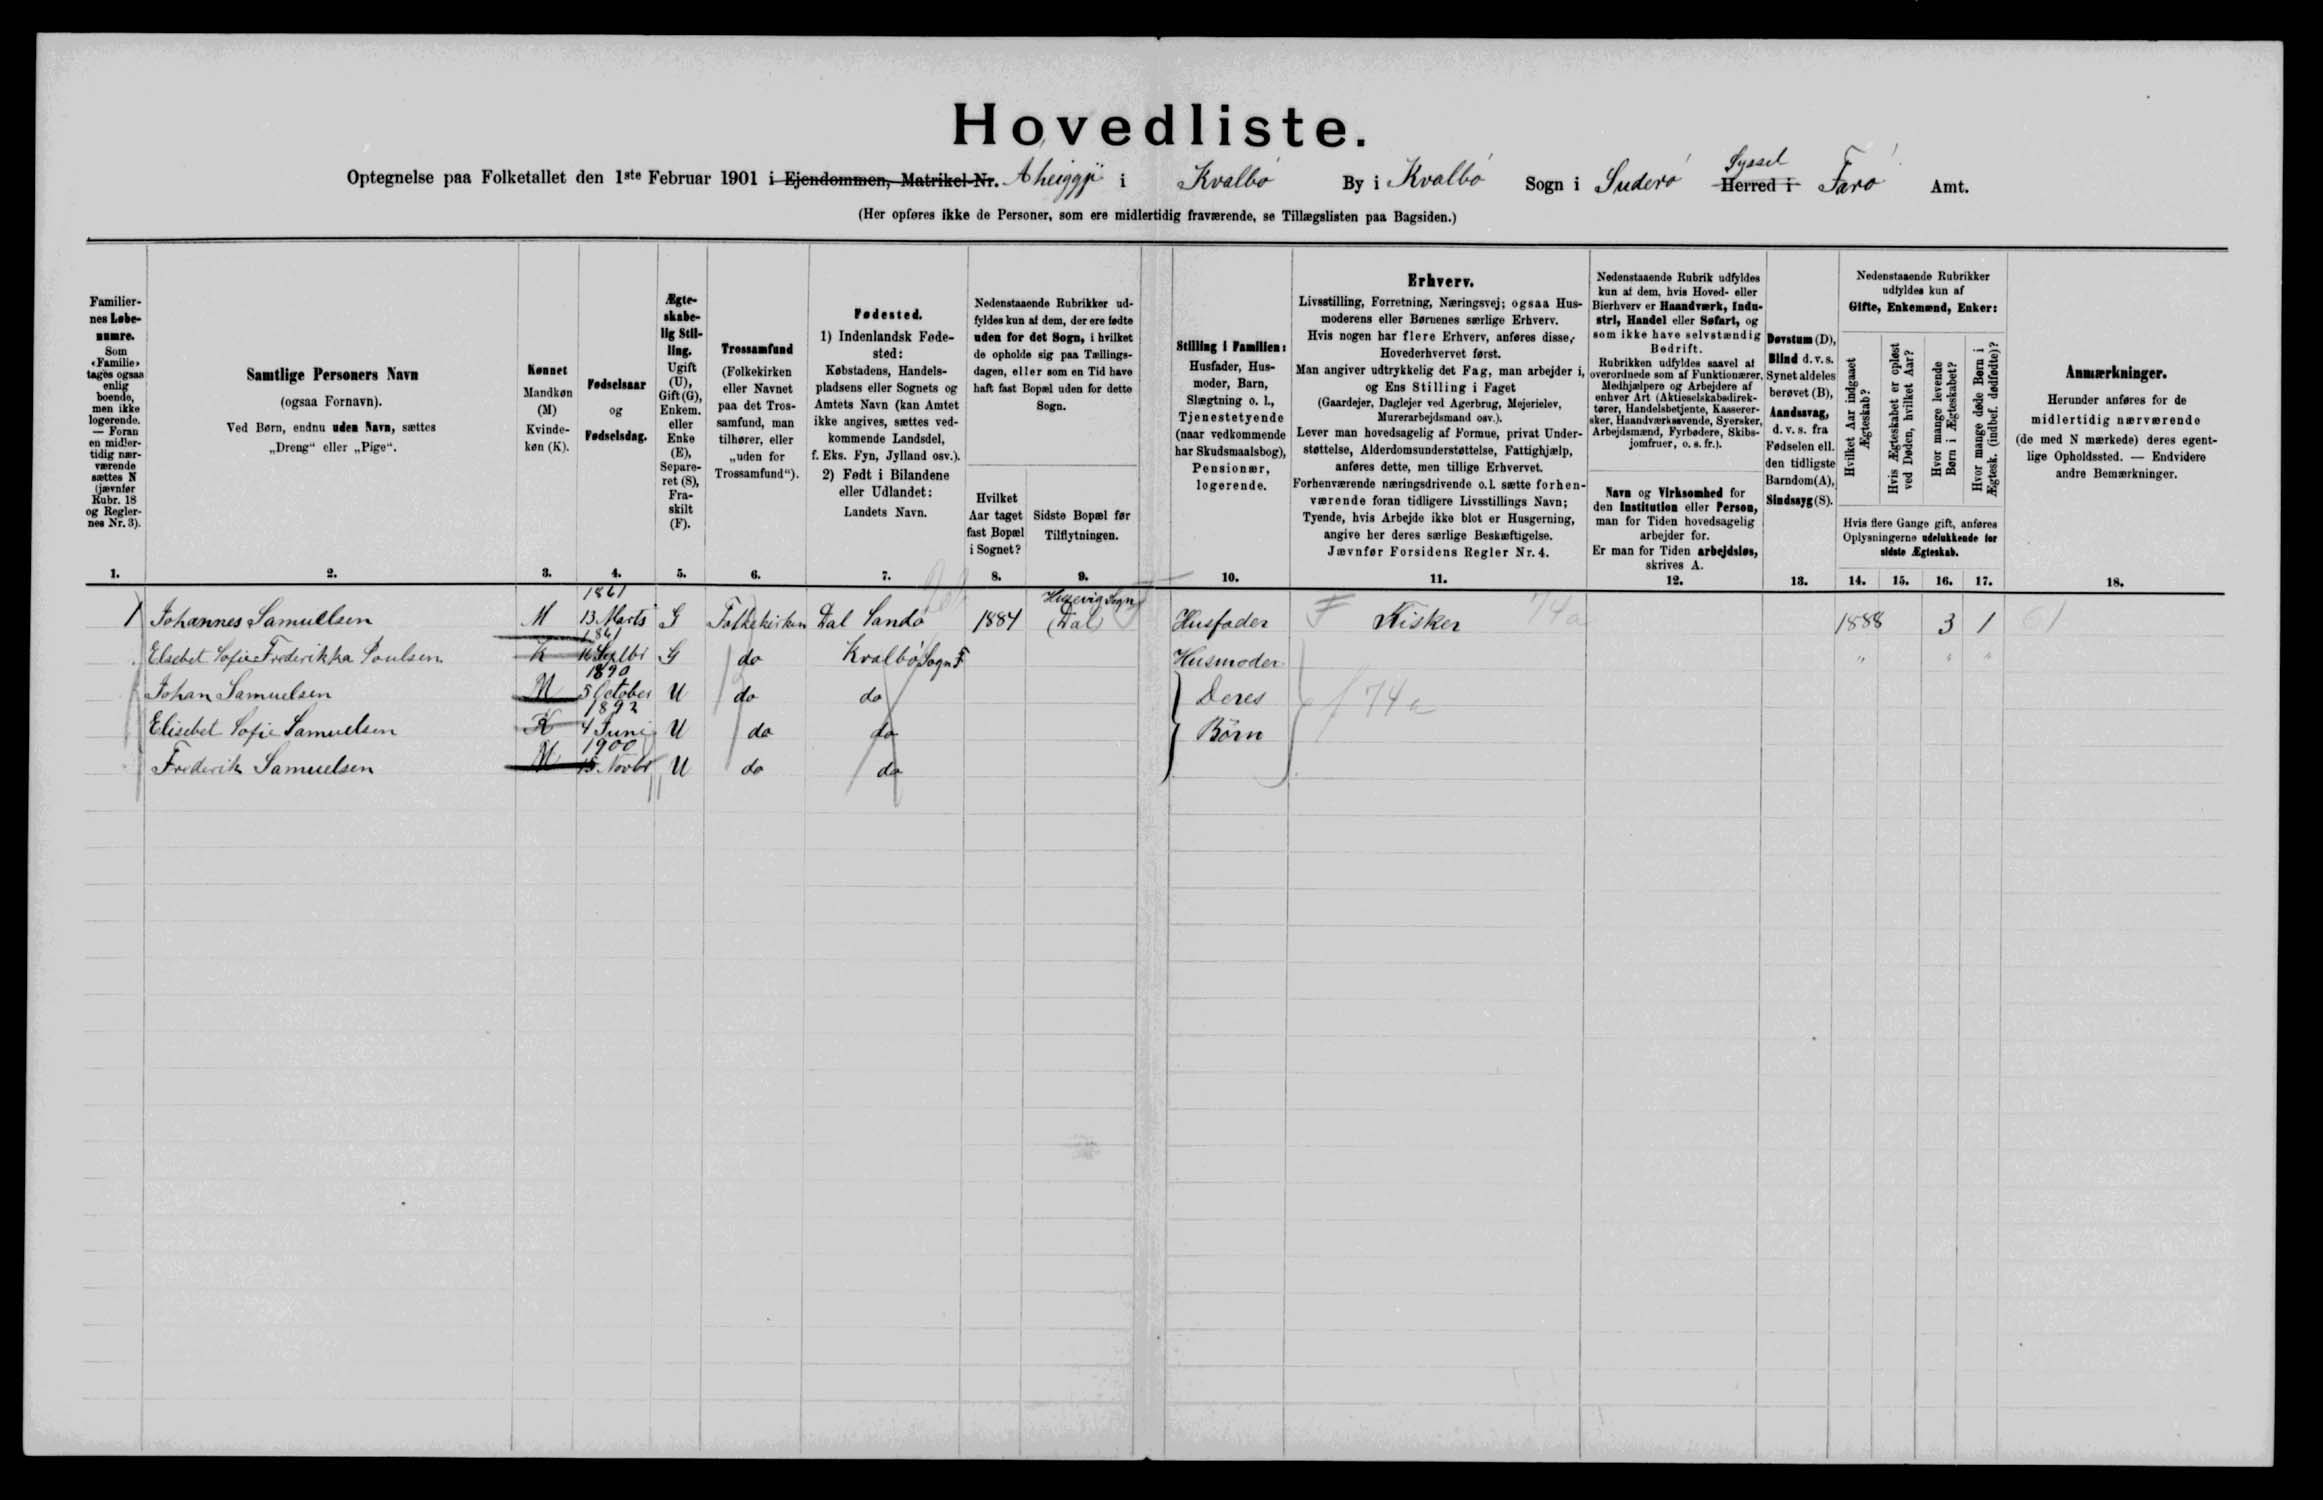 Hovedliste.
Optegnelse paa Folketallet den 1ste Februar 1901 i Ejendommen, Matrikel-Nr. Aheiggji i Kvalbø By i Kvalbø Sogn i Suderø Herred i Syssel Færø Amt.
(Her opføres ikke de Personer, som ere midlertidig fraværende, se Tillægslisten paa Bagsiden.)
Familier-
nes Løbe-
numre.
Som
«Familie»
tages ogsaa
enlig
boende,
men ikke
logerende.
— Foran
en midler-
tidig nær-
værende
sættes N
(jævnfør
Rubr. 18
og Regler-
nes Nr. 3).
Samtlige Personers Navn
(ogsaa Fornavn).
Ved Børn, endnu uden Navn, sættes
„Dreng“ eller „Pige“.
Kønnet
Mandkøn
(M)
Kvinde-
køn (K).
Fødselsaar
og
Fødselsdag.
Ægte-
skabe-
lig Stil-
ling.
Ugift
(U),
Gift (G),
Enkem.
eller
Enke
(E),
Separe-
ret (S),
Fra-
skilt
(F).
Trossamfund
(Folkekirken
eller Navnet
paa det Tros-
samfund, man
tilhører, eller
„uden for
Trossamfund“).
Fødested.
1) Indenlandsk Føde-
sted:
Købstadens, Handels-
pladsens eller Sognets og
Amtets Navn (kan Amtet
ikke angives, sættes ved-
kommende Landsdel,
f. Eks. Fyn, Jylland osv.).
2) Født i Bilandene
eller Udlandet:
Landets Navn.
Nedenstaaende Rubrikker ud-
fyldes kun af dem, der ere fødte
uden for det Sogn, i hvilket
de opholde sig paa Tællings-
dagen, eller som en Tid have
haft fast Bopæl uden for dette
Sogn.
Hvilket
Aar taget
fast Bopæl
i Sognet?
Sidste Bopæl før
Tilflytningen.
Stilling i Familien:
Husfader, Hus-
moder, Barn,
Slægtning o. l.,
Tjenestetyende
(naar vedkommende
har Skudsmaalsbog),
Pensionær,
logerende.
Erhverv.
Livsstilling, Forretning, Næringsvej; ogsaa Hus-
moderens eller Børnenes særlige Erhverv.
Hvis nogen har flere Erhverv, anføres disse,
Hovederhvervet først.
Man angiver udtrykkelig det Fag, man arbejder i,
og Ens Stilling i Faget
(Gaardejer, Daglejer ved Agerbrug, Mejerielev,
Murerarbejdsmand osv.).
Lever man hovedsagelig af Formue, privat Under-
støttelse, Alderdomsunderstøttelse, Fattighjælp,
anføres dette, men tillige Erhvervet.
Forhenværende næringsdrivende o.l. sætte forhen-
værende foran tidligere Livsstillings Navn;
Tyende, hvis Arbejde ikke blot er Husgerning,
angive her deres særlige Beskæftigelse.
Jævnfør Forsidens Regler Nr. 4.
Nedenstaaende Rubrik udfyldes
kun af dem, hvis Hoved- eller
Bierhverv er Haandværk, Indu-
stri, Handel eller Søfart, og
som ikke have selvstændig
Bedrift.
Rubrikken udfyldes saavel af
overordnede som af Funktionærer,
Medhjælpere og Arbejdere af
enhver Art (Aktieselskabsdirek-
tører, Handelsbetjente, Kasserer-
sker, Haandværkssvende, Syersker,
Arbejdsmænd, Fyrbødere, Skibs-
jomfruer, o. s. fr.).
Navn og Virksomhed for
den Institution eller Person,
man for Tiden hovedsagelig
arbejder for.
Er man for Tiden arbejdsløs,
skrives A.
Døvstum (D),
Blind d. v. s.
Synet aldeles
berøvet (B),
Aandssvag,
d. v. s. fra
Fødselen ell.
den tidligste
Barndom (A),
Sindssyg (S).
Nedenstaaende Rubrikker
udfyldes kun af
Gifte, Enkemænd, Enker:
Hvilket Aar indgaaet
Ægteskab?
Hvis Ægteskabet er opløst
ved Døden, hvilket Aar?
Hvor mange levende
Børn i Ægteskabet?
Hvor mange døde Børn i
Ægtesk. (indbef. dødfødte)?
Hvis flere Gange gift, anføres
Oplysningerne udelukkende for
sidste Ægteskab.
Anmærkninger.
Herunder anføres for de
midlertidig nærværende
(de med N mærkede) deres egent-
lige Opholdssted. — Endvidere
andre Bemærkninger.
1. 2. 3. 4. 5. 6. 7. 8. 9. 10. 11. 12. 13. 14. 15. 16. 17. 18.
1861 Husevig Sogn
1 Johannes Samuelsen M 13 Marts G Folkekirken Dal Sandø 1884 (Dal) Husfader F Fisker 74a 1888 3 1 61
1861
Elsebet Sofie Frederikka Poulsen K 16 Septbr G do Kvalbø Sogn F Husmoder " " "
1890
Johan Samuelsen M 5 October U do do Deres f 74a
1892
Elisebet Sofie Samuelsen K 4 Juni U do do Börn
1900
Frederik Samuelsen M 15 Novbr U do do